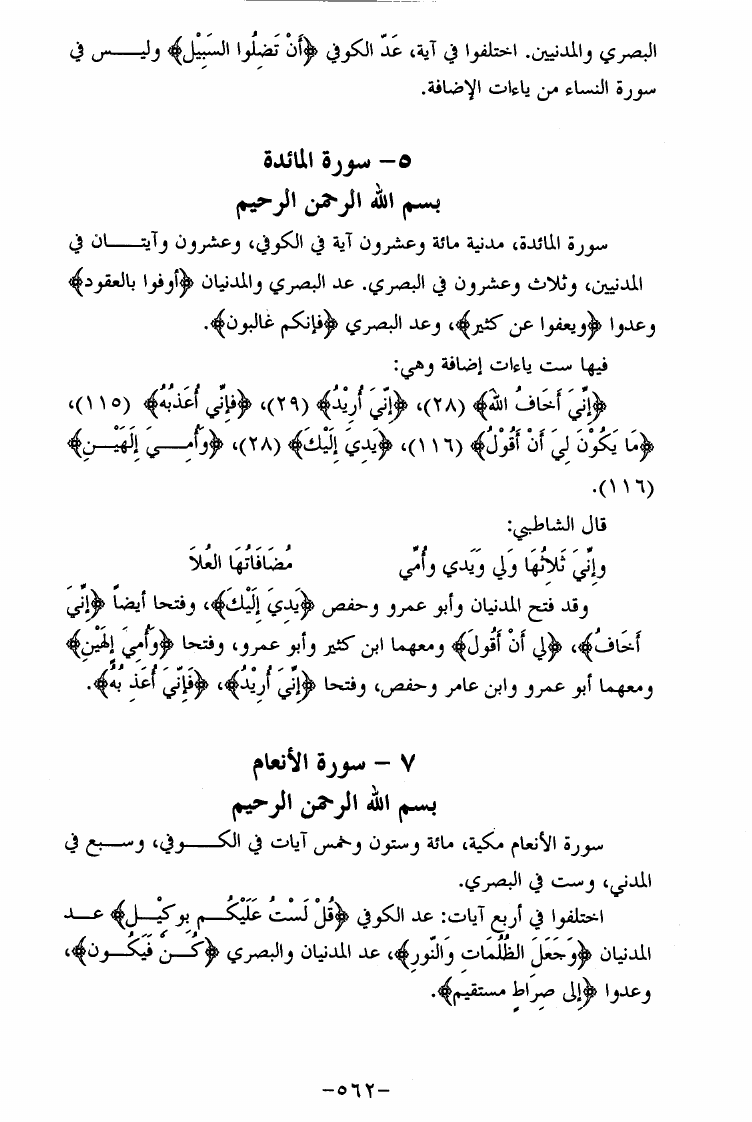 البصري والمدنيين. اختلفوا في آية، عَدّ الكوفي ﴿أَنْ تَضِلُّوا السَبِيْل﴾ وليـــس في
سورة النساء من ياءات الإضافة.
٥- سورة المائدة
بسم الله الرحمن الرحيم
سورة المائدة، مدنية مائة وعشرون آية في الكوفي، وعشرون وآيتـــان في
المدنيين، وثلاث وعشرون في البصري. عد البصري والمدنيان ﴿أوفوا بالعقود﴾
وعدوا ﴿ويعفوا عن كثير﴾، وعد البصري ﴿فإنكم غالبون﴾.
فيها ست ياءات إضافة وهي:
﴿إِنِّيَ أَخَافُ اللهَ﴾ (٢٨)، ﴿إِنِّيَ أُرِيْدُ﴾ (٢٩)، ﴿فَإِنِّي أُعَذبُهُ﴾ (١١٥)،
﴿مَا يَكُوْنَ لِيَ أَنْ أَقُوْلُ﴾ (١١٦)، ﴿يَدِيَ إِلَيْكَ﴾ (٢٨)، ﴿وَأُمِـــيَ إِلَهَيْـــنِ﴾
(١١٦).
قال الشاطبي:
وإنِّيَ ثَلاثُهَا وَلي وَيَدي وأُمِّي مُضَافَاتُهَا العُلاَ
وقد فتح المدنيان وأبو عمرو وحفص ﴿يَدِيَ إِلَيْكَ﴾، وفتحا أيضاً ﴿إِنِّيَ
أَخَافُ﴾، ﴿لي أَنْ أَقُولَ﴾ ومعهما ابن كثير وأبو عمرو، وفتحا ﴿وَأُمِيَ إِلهَيْنِ﴾
ومعهما أبو عمرو وابن عامر وحفص، وفتحا ﴿إِنِّيَ أُرِيْدُ﴾، ﴿فَإِنِّيَ أُعَذ بُهُ﴾.
٧ – سورة الأنعام
بسم الله الرحمن الرحيم
سورة الأنعام مكية، مائة وستون وخمس آيات في الكـــوفي، وســـبع في
المدني، وست في البصري.
اختلفوا في أربع آيات: عد الكوفي ﴿قُلْ لَسْتُ عَلَيْكُـــم بِوكِيْـــل﴾ عـــد
المدنيان ﴿وَجَعَلَ الظُلُمَات وَالنّور﴾، عد المدنيان والبصري ﴿كُـــنْ فَيَكُـــون﴾،
وعدوا ﴿إِلى صِرَاطٍ مستقيم﴾.
-٥٦٢-